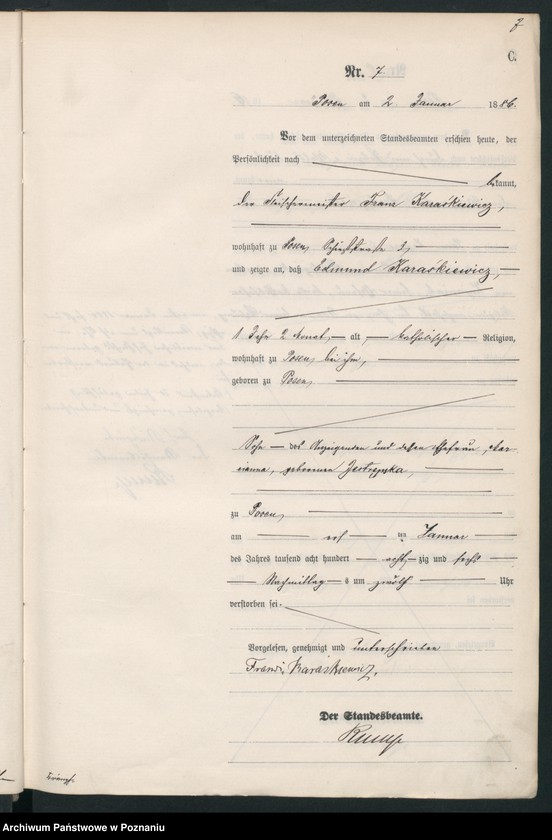 7
C.
Nr. 7
Posen am 2. Januar 1886.
Vor dem unterzeichneten Standesbeamten erschien heute, der
Persönlichkeit nach
bekannt,
der Fleischermeister Franz Karaśkiewicz,
wohnhaft zu Posen, 3,
und zeigte an, daß Edmund Karaśkiewicz,
1 Jahr 2 Monat, alt, katholischer Religion,
wohnhaft zu Posen, bei ihm,
geboren zu Posen,
Sohn des Anzeigenden und dessen Ehefrau, Mar
rianna, geborenen
zu Posen,
am ersten Januar
des Jahres tausend acht hundert achtzig und sechs
Nachmittags um zwölf Uhr
verstorben sei.
Vorgelesen, genehmigt und unterschrieben
Karaśkiewicz,
Der Standesbeamte.
Archiwum Państwowe w Poznaniu